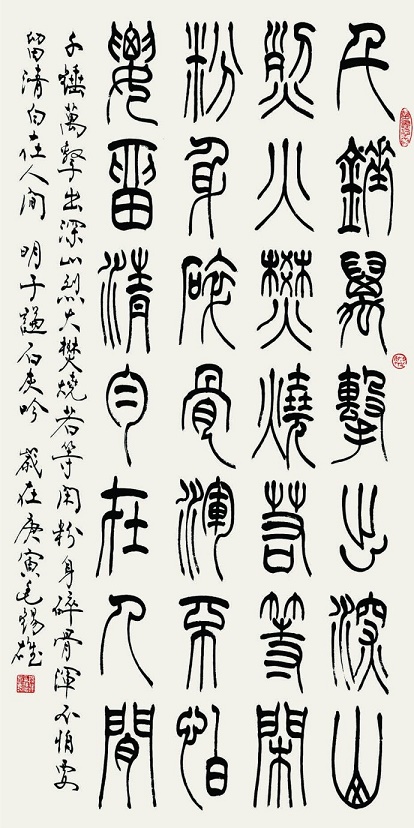 千錘萬擊出深山
烈火焚燒若等閑
粉身碎骨渾不怕
要留清白在人間
千錘萬擊出深山烈火焚燒若等閑粉身碎骨渾不怕要
留清白在人間 明于謙石灰吟 歲在庚寅毛錫雄